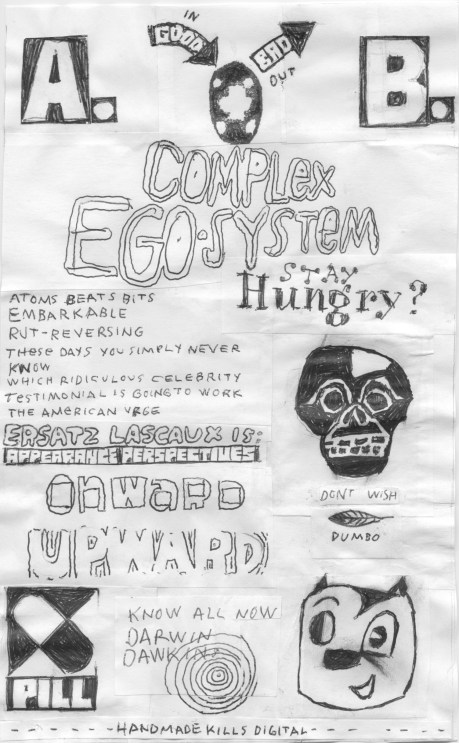 A.
IN
GOOD
BAD
OUT
B.
COMPLEX
EGO·SYSTEM
STAY
Hungry?
ATOMS BEATS BITS
EMBARKABLE
RUT-REVERSING
THESE DAYS YOU SIMPLY NEVER
KNOW
WHICH RIDICULOUS CELEBRITY
TESTIMONIAL IS GOING TO WORK
THE AMERICAN URGE
ERSATZ LASCAUX IS:
APPEARANCE PERSPECTIVES
ONWARD
UPWARD
DONT WISH
DUMBO
PILL
KNOW ALL NOW
DARWIN
DAWKINS
HANDMADE KILLS DIGITAL